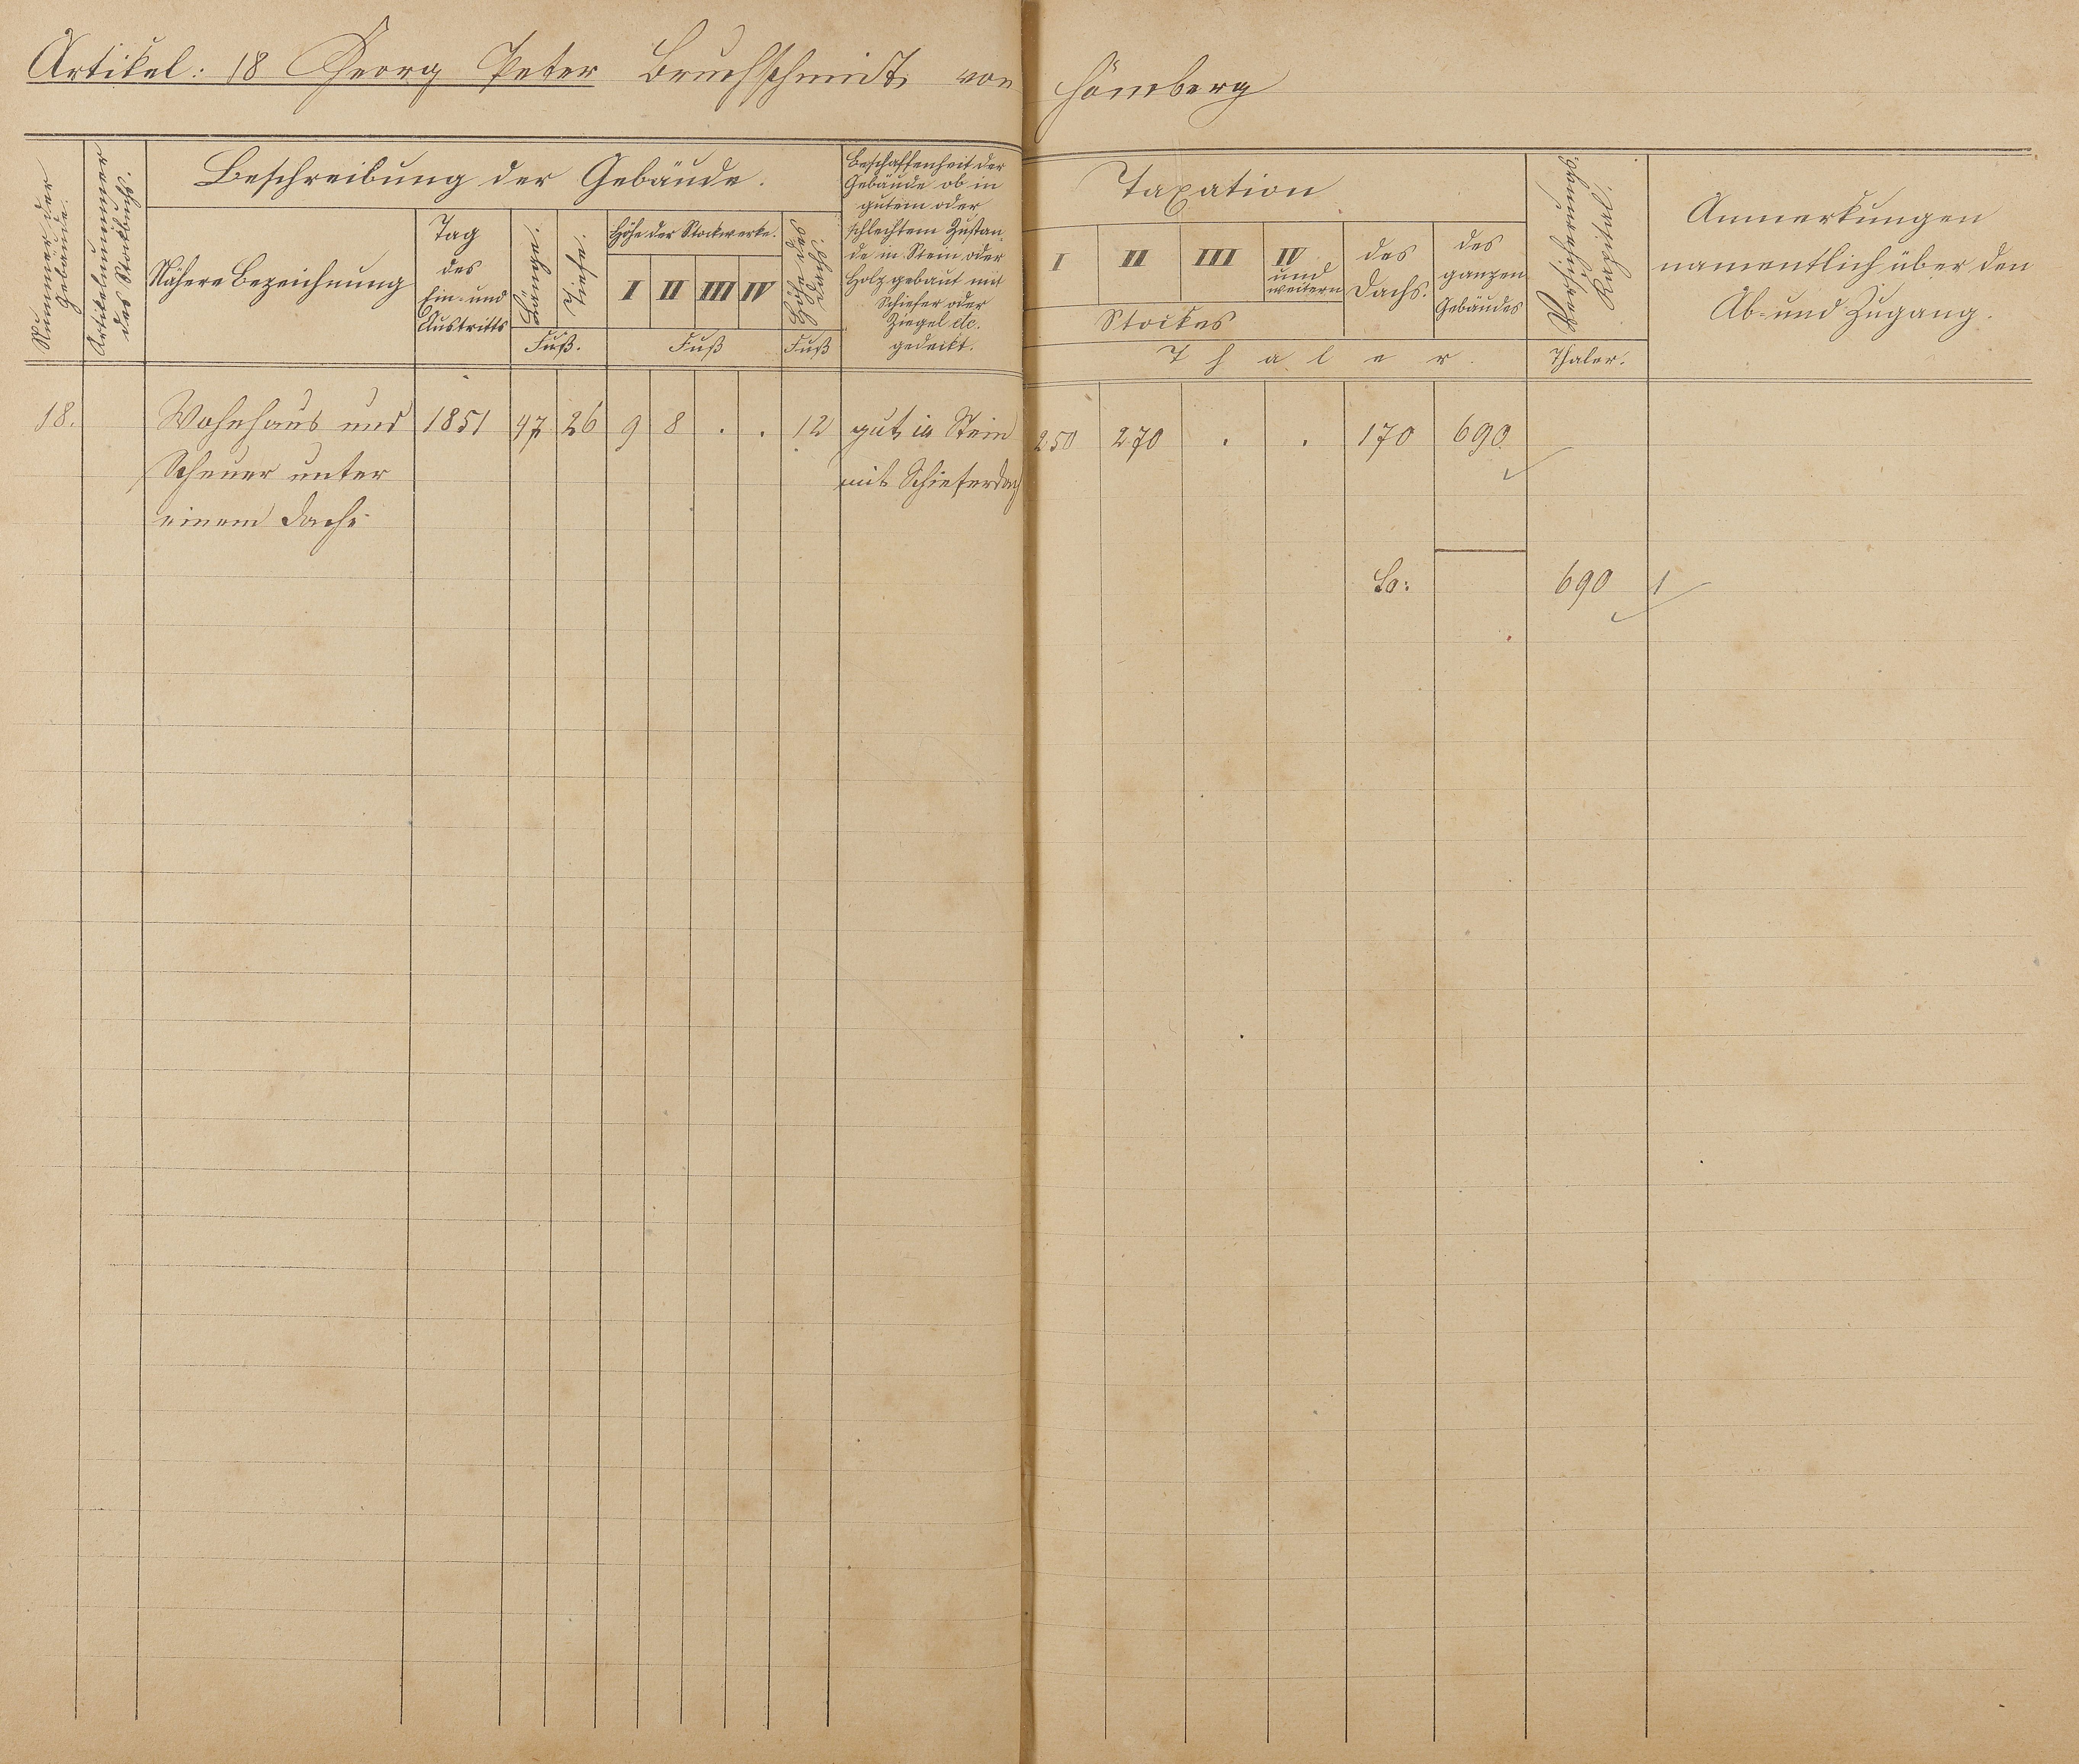 Artikel: 18 Georg Peter Bruchschmidt von Hömberg
Nummer der
Gebäude.
Artikelnummer
des Stockbuchs.
Beschreibung der Gebäude.
Nähere Bezeichnung
Tag
des
Ein- und
Austritts
Länge.
Tiefe.
Fuß.
Höhe der Stockwerke.
I II III IV
Fuß
Höhe des
Dachs.
Fuß
Beschaffenheit der
Gebäude ob in
gutem oder
schlechtem Zustan-
de in Stein oder
Holz gebaut mit
Schiefer oder
Ziegel etc.
gedeckt.
Taxation
I II III IV
und
weitern
Stockes
des
Dachs.
des
ganzen
Gebäudes
Thaler.
Versicherungs-
Thaler.
Anmerkungen
namentlich über den
Ab- und Zugang.
18. Wohnhaus und 1851 47 26 9 8 . . 12 gut, in Stein 250 270 . . 170 690
Scheuer unter mit Schieferdach
einem Dache
So: 690 1